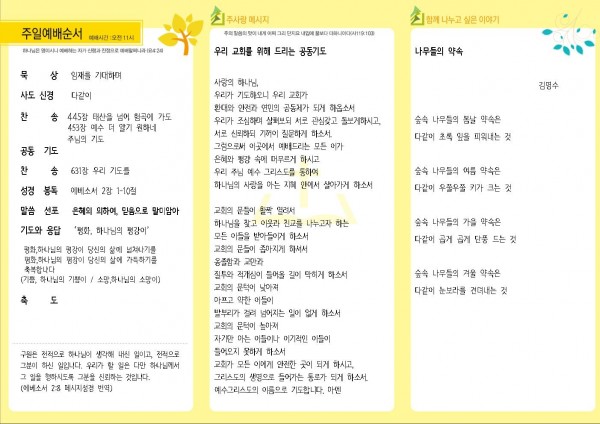 주일예배순서 예배시간 : 오전 11시
하나님은 영이시니 예배하는 자가 신령과 진정으로 예배할찌니라 (요4:24)
묵 상 임재를 기대하며
사도 신경 다같이
찬 송 445장 태산을 넘어 험곡에 가도
453장 예수 더 알기 원하네
주님의 기도
공동 기도
찬 송 631장 우리 기도를
성경 봉독 에베소서 2장 1-10절
말씀 선포 은혜의 의하여, 믿음으로 말미암아
기도와 응답 "평화, 하나님의 평강이"
평화,하나님의 평강이 당신의 삶에 넘쳐나기를
평화,하나님의 평강이 당신의 삶에 가득하기를
축복합니다
(기쁨, 하나님의 기쁨이 / 소망,하나님의 소망이)
축 도
구원은 전적으로 하나님이 생각해 내신 일이고, 전적으로
그분이 하신 일입니다. 우리가 할 일은 다만 하나님께서
그 일을 행하시도록 그분을 신뢰하는 것입니다.
(에베소서 2:8 메시지성경 번역)
주사랑 메시지
주의 말씀의 맛이 내게 어찌 그리 단지요 내입에 꿀보다 더하니이다(시119:103)
우리 교회를 위해 드리는 공동기도
사랑의 하나님,
우리가 기도하오니 우리 교회가
환대와 안전과 연민의 공동체가 되게 하옵소서
우리가 조심하며 살펴보되 서로 관심갖고 돌보게하시고,
서로 신뢰하되 기꺼이 질문하게 하소서.
그럼으로써 이곳에서 예배드리는 모든 이가
은혜와 평강 속에 머무르게 하시고
우리 주님 예수 그리스도를 통하여
하나님의 사랑을 아는 지혜 안에서 살아가게 하소서
교회의 문들이 활짝 열려서
하나님을 찾고 이웃과 친교를 나누고자 하는
모든 이들을 받아들이게 하소서
교회의 문들이 좁아지게 하셔서
옹졸함과 교만과
질투와 적개심이 들어올 길이 막히게 하소서
교회의 문턱이 낮아져
아프고 약한 이들이
발부리가 걸려 넘어지는 일이 없게 하소서
교회의 문턱이 높아져
자기만 아는 이들이나 이기적인 이들이
들어오지 못하게 하소서
교회가 모든 이에게 안전한 곳이 되게 하시고,
그리스도의 생명으로 들어가는 통로가 되게 하소서.
예수그리스도의 이름으로 기도합니다. 아멘
함께 나누고 싶은 이야기
나무들의 약속
김명수
숲속 나무들의 봄날 약속은
다같이 초록 잎을 피워내는 것
숲속 나무들의 여름 약속은
다같이 우쭐우쭐 키가 크는 것
숲속 나무들의 가을 약속은
다같이 곱게 곱게 단풍 드는 것
숲속 나무들의 겨울 약속은
다같이 눈보라를 견뎌내는 것